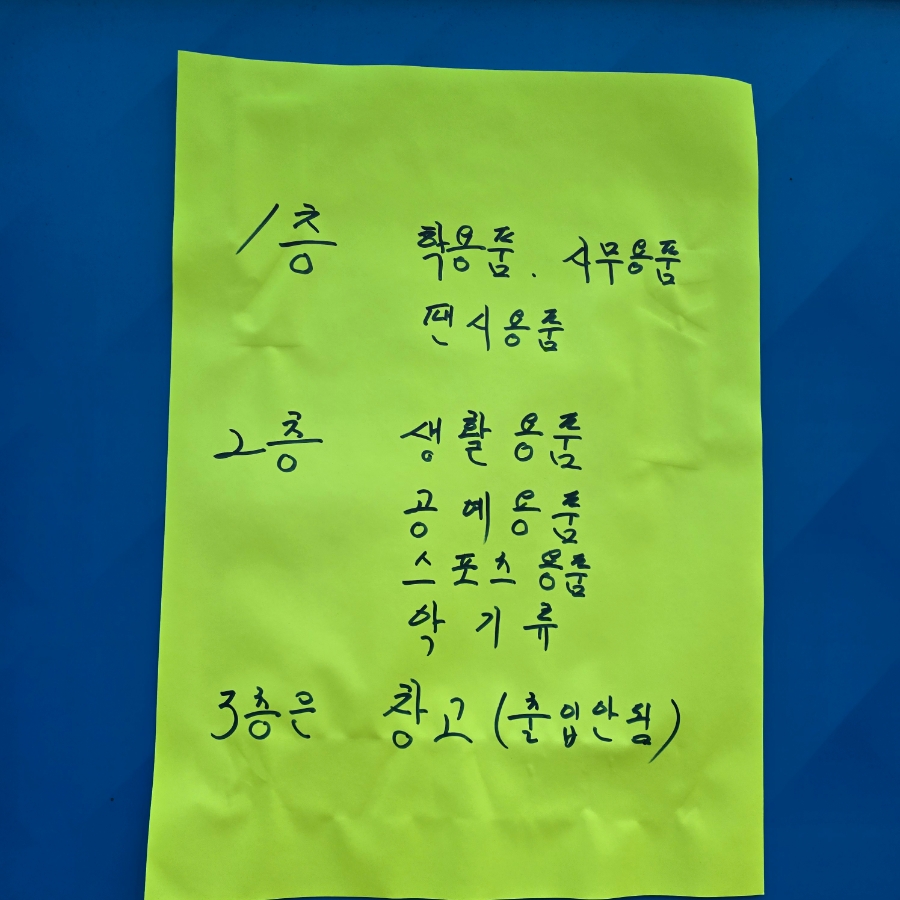 1층 학용품. 사무용품
팬시용품
2층 생활용품
공예용품
스포츠용품
악기류
3층은 창고 (출입안됨)